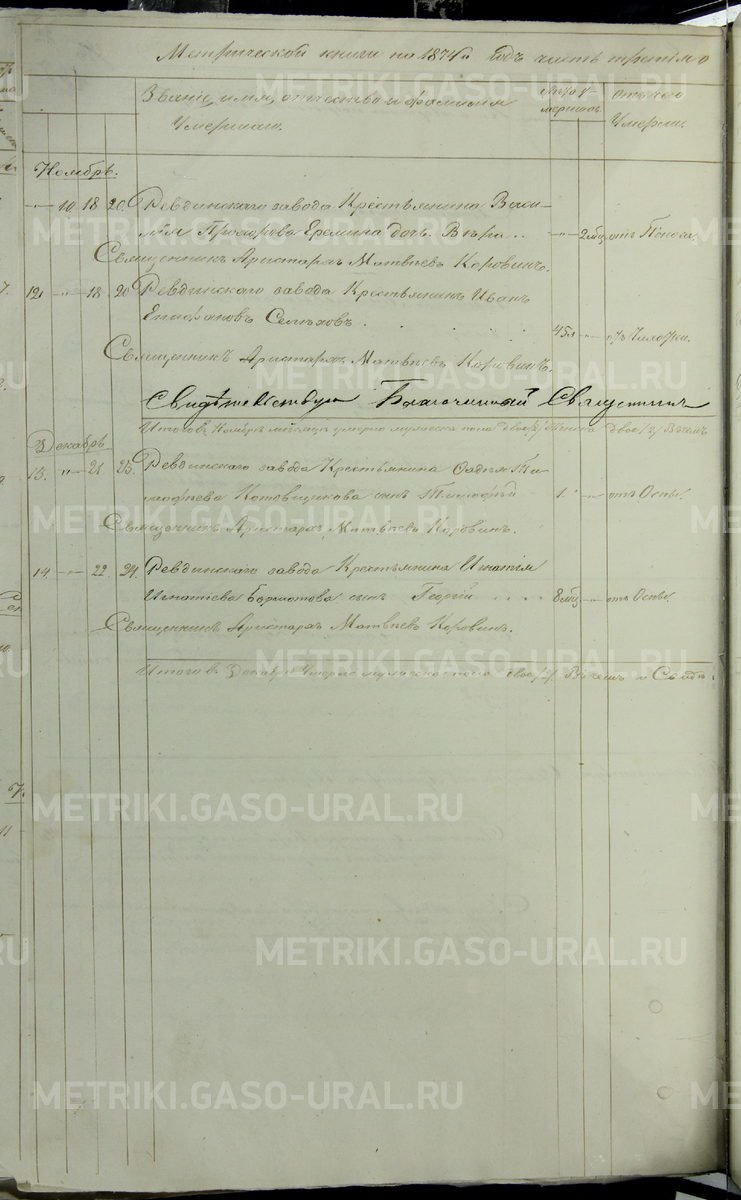 Метрической книги на 1874й годъ часть третiя о
Званiе, имя, отчество и фамилiя
Умершаго.
Лѣта умершаго.
отъ чего
Умеръ.
Ноябрь.
10 18 20. Ревдинскаго завода Крестьянина Васи-
лiя Прохорова Еремина дочь Вѣра .. 2 мц отъ Поноса.
Священникъ Аристархъ Матвѣевъ Коровинъ.
12 18 20 Ревдинскаго завода Крестьянинъ Иванъ
Епифановъ . 45 л. отъ Чахотки.
Священникъ Аристархъ Матвѣевъ Коровинъ.
Свидѣтельствую Благочинный Священникъ
Итого въ Ноябрѣ мѣсяцѣ умерло мужеска пола двое /2/ женска двое /2/ Всѣхъ
Декабрь
13. 21 23. Ревдинскаго завода Крестьянина Ти-
мофѣева Котовщикова сынъ Тимофѣй 1 отъ Оспы.
Священникъ Аристархъ Матвѣевъ Коровинъ.
14. 22 24. Ревдинскаго завода Крестьянина Игнатiя
Игнатiева Бормотова сынъ Георгiй .... 8 мц отъ Оспы.
Священникъ Аристархъ Матвѣевъ Коровинъ.
Итого въ Декабрѣ Умерло мужескаго пола двое /2/.
METRIKI.GASO-URAL.RU